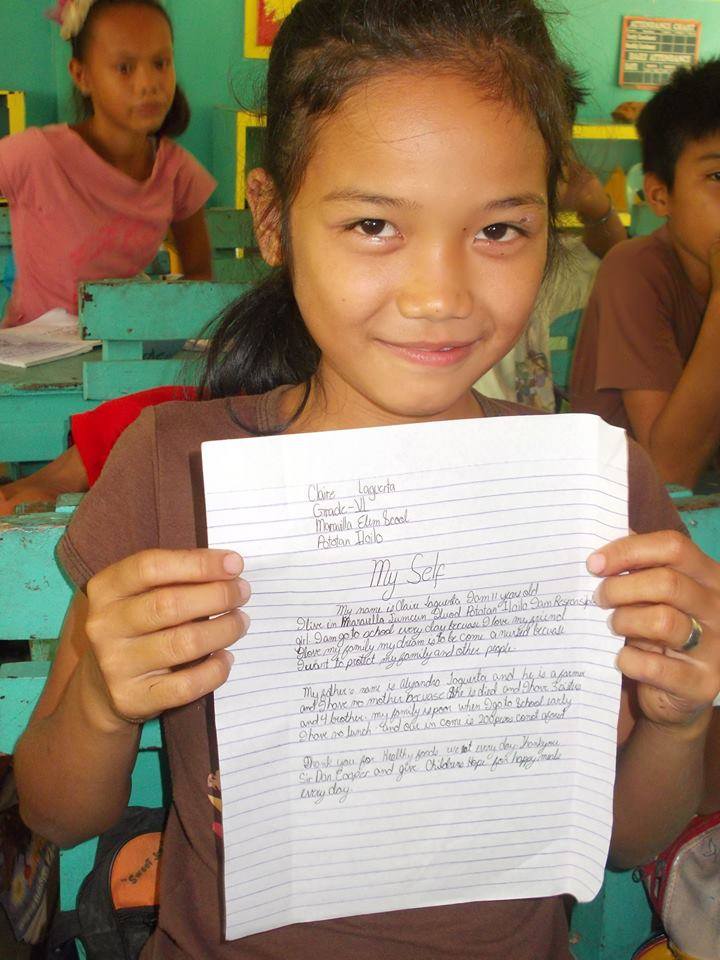 ATTENDANCE CHART
Claire Laguerta
Grade-VI
Maravilla Elem Scool
Pototan Iloilo
My Self
My name is Claire Laguerta I am 11 year old
I live in Maravilla Pototan Iloilo I am Responsible
girl. I am go to school every day becuase I love my friend
I love my family my dream is to be come a nursed becuase
I want to protect my family and other people.
My father's name is Alejandro Laguerta and he is a farmer
and I have no mother becuase she is died and I have 3 sister
and 4 brother. my family is poor when I go to school early
I have no lunch and our in come is 200 pesos
Thank you for Healthy foods we eat every day. Thank you
Sir Dan Cooper and give Childrens Hope for happy meals
every day.
"Sweet